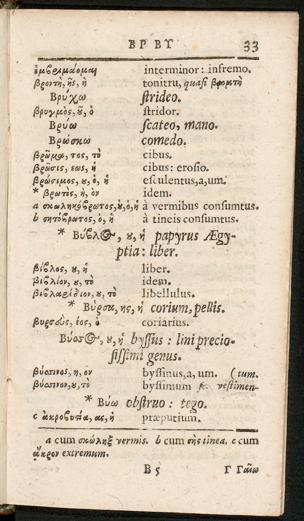 ΒΡ ΒΥ 33
ἐμβριμάομαι interminor: infremo.
βροντὴ, ῆς, ἡ tonitru, quasi βρομτὴ
Βρύχω strideo.
βρυγμὸς, ȣ, ὁ stridor.
Βρύω scateo, mano.
Βρώσκω comedo.
βρῶμα, τος, τὸ cibus.
βρῶσις, εως, ἡ cibus: erosio.
βρώσιμος, ȣ, ὁ, ἡ esculentus,a,um.
* βρωτὸς, ἡ, ὸν idem.
a σκωληκόβρωτος,ȣ,ὁ,ἡ à vermibus consumtus.
b σητόβρωτος, ὁ, ἡ à tineis consumtus.
* Βύβλος, ȣ, ἡ papyrus Ægy-
ptia: liber.
βίβλος, ȣ, ἡ liber.
βιβλίον, ȣ, τὸ idem.
βιβλαρίδιον, ȣ, τὸ libellulus.
* Βύρσα, ης, ἡ corium, pellis.
βυρσεὺς, έος, ὁ coriarius.
Βύσσος, ȣ, ἡ byssus: lini precio-
sissimi genus.
βύσσινος, η, ον byssinus,a, um. (tum.
βύσσινον,ȣ,τὸ byssinum sc. vestimen-
* Βύω obstruo: tego.
c ἀκροβυστία, ας, ἡ præputium.
a cum σκώληξ vermis. b cum σὴς tinea. c cum
ἄκρον extremum.
B 5 Γ Γαίω